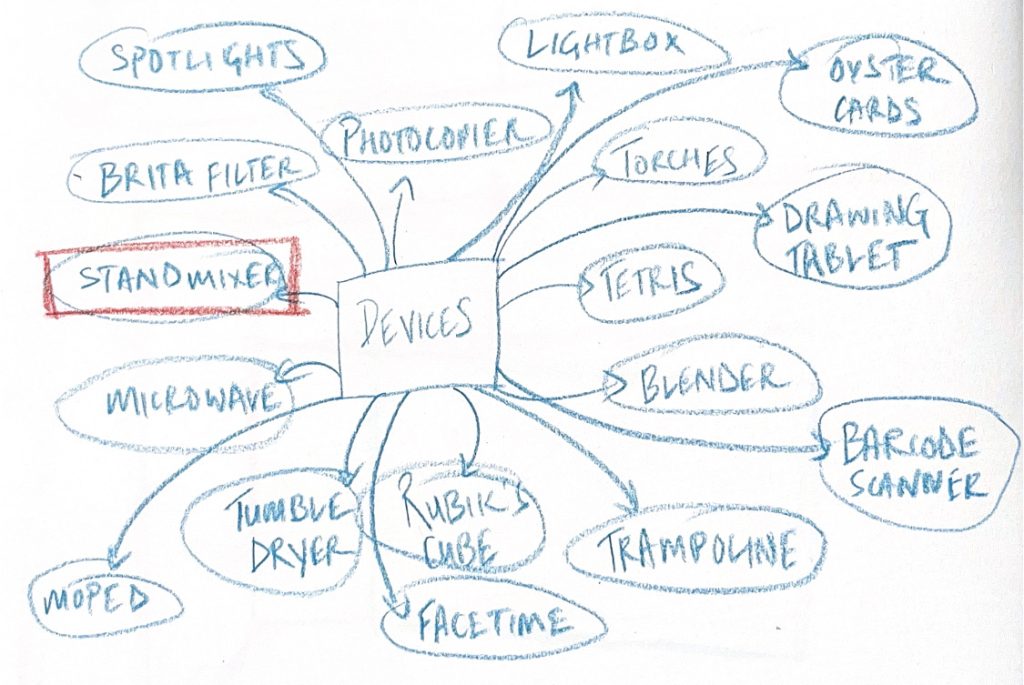 SPOTLIGHTS
LIGHTBOX
OYSTER
CARDS
PHOTOCOPIER
TORCHES
BRITA FILTER
DRAWING
TABLET
STANDMIXER
TETRIS
DEVICES
BLENDER
MICROWAVE
BARCODE
SCANNER
TUMBLE
DRYER
RUBIK'S
CUBE
TRAMPOLINE
MOPED
FACETIME